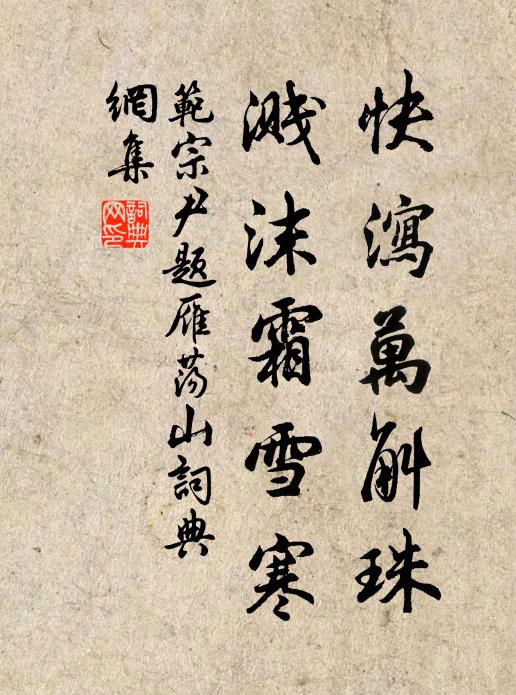 快瀉萬斛珠
濺沫霜雪寒
範宗尹題雁蕩山詞典
網集
詞典
网印